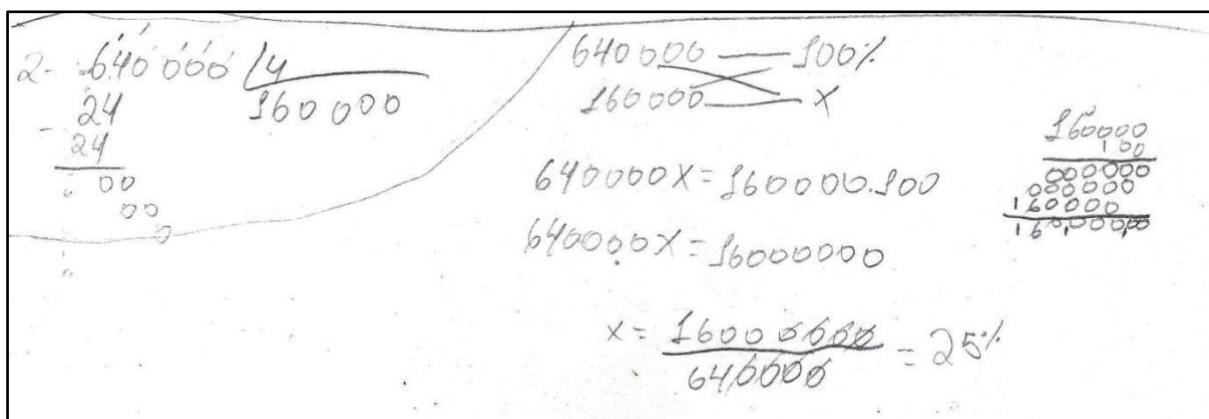 2- 640000 | 4
24 160000
- 24
00
00
0
640000 — 100%
160000 — X
640000X = 160000.100
640000X = 16000000
X = 16000000 / 640000 = 25%
160000
100
000000
000000
160000
16000000